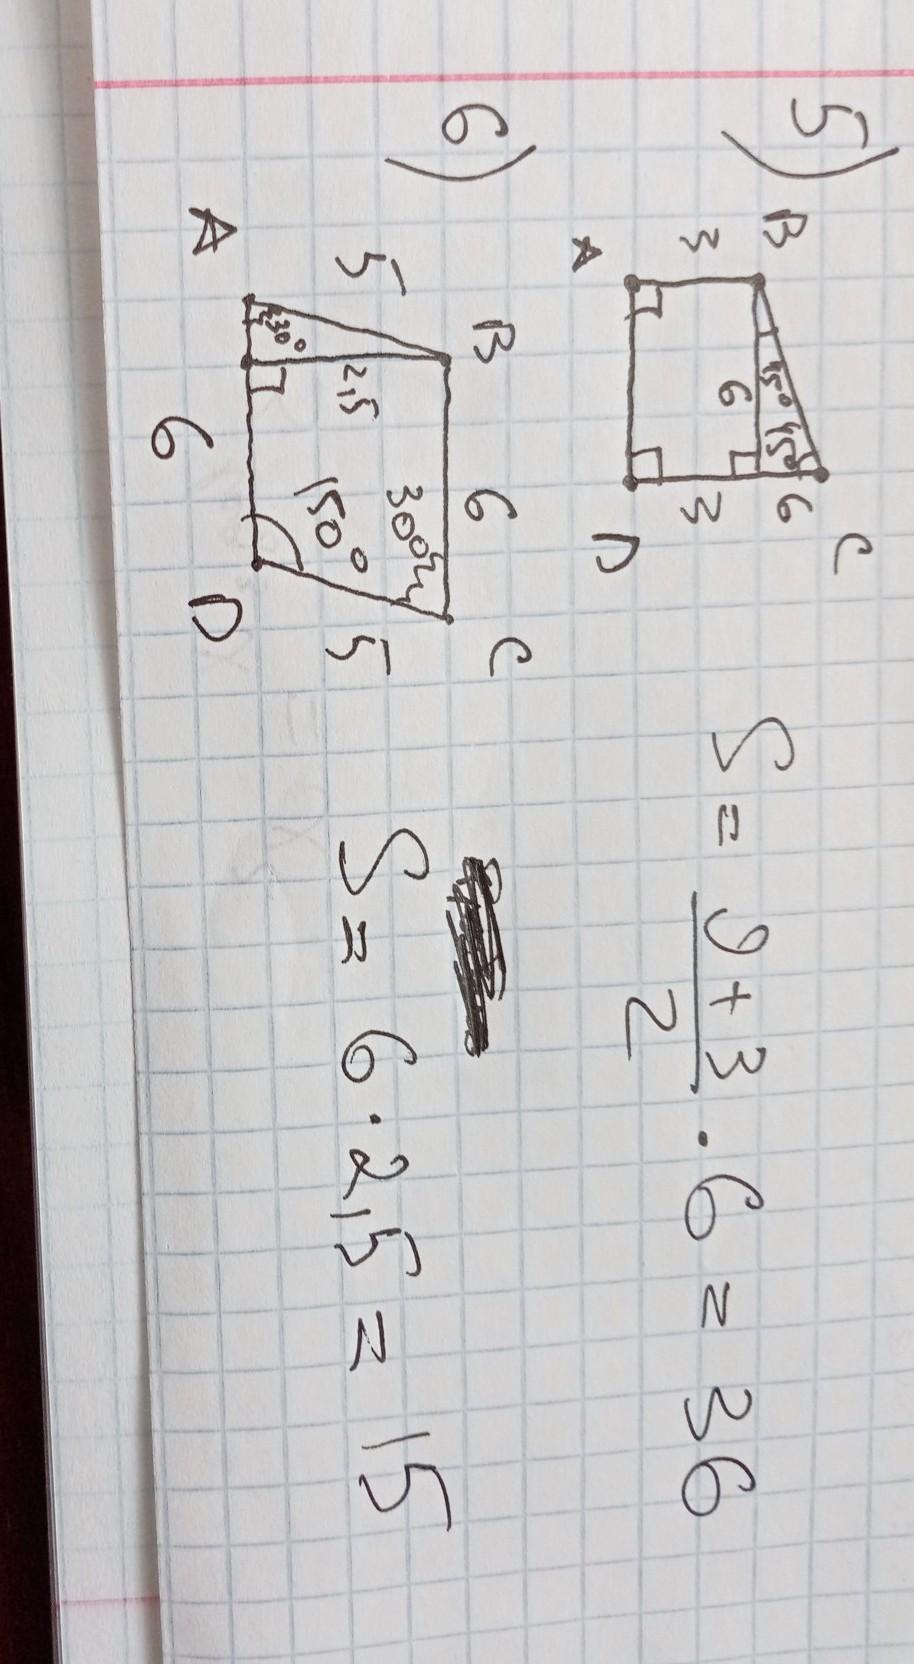 5)
B
C
3
6
45°
45°
6
3
A
D
S = \frac{9+3}{2} · 6 = 36
6)
B
6
C
5
2,5
30°
30°
150°
5
A
6
D
S = 6 · 2,5 = 15